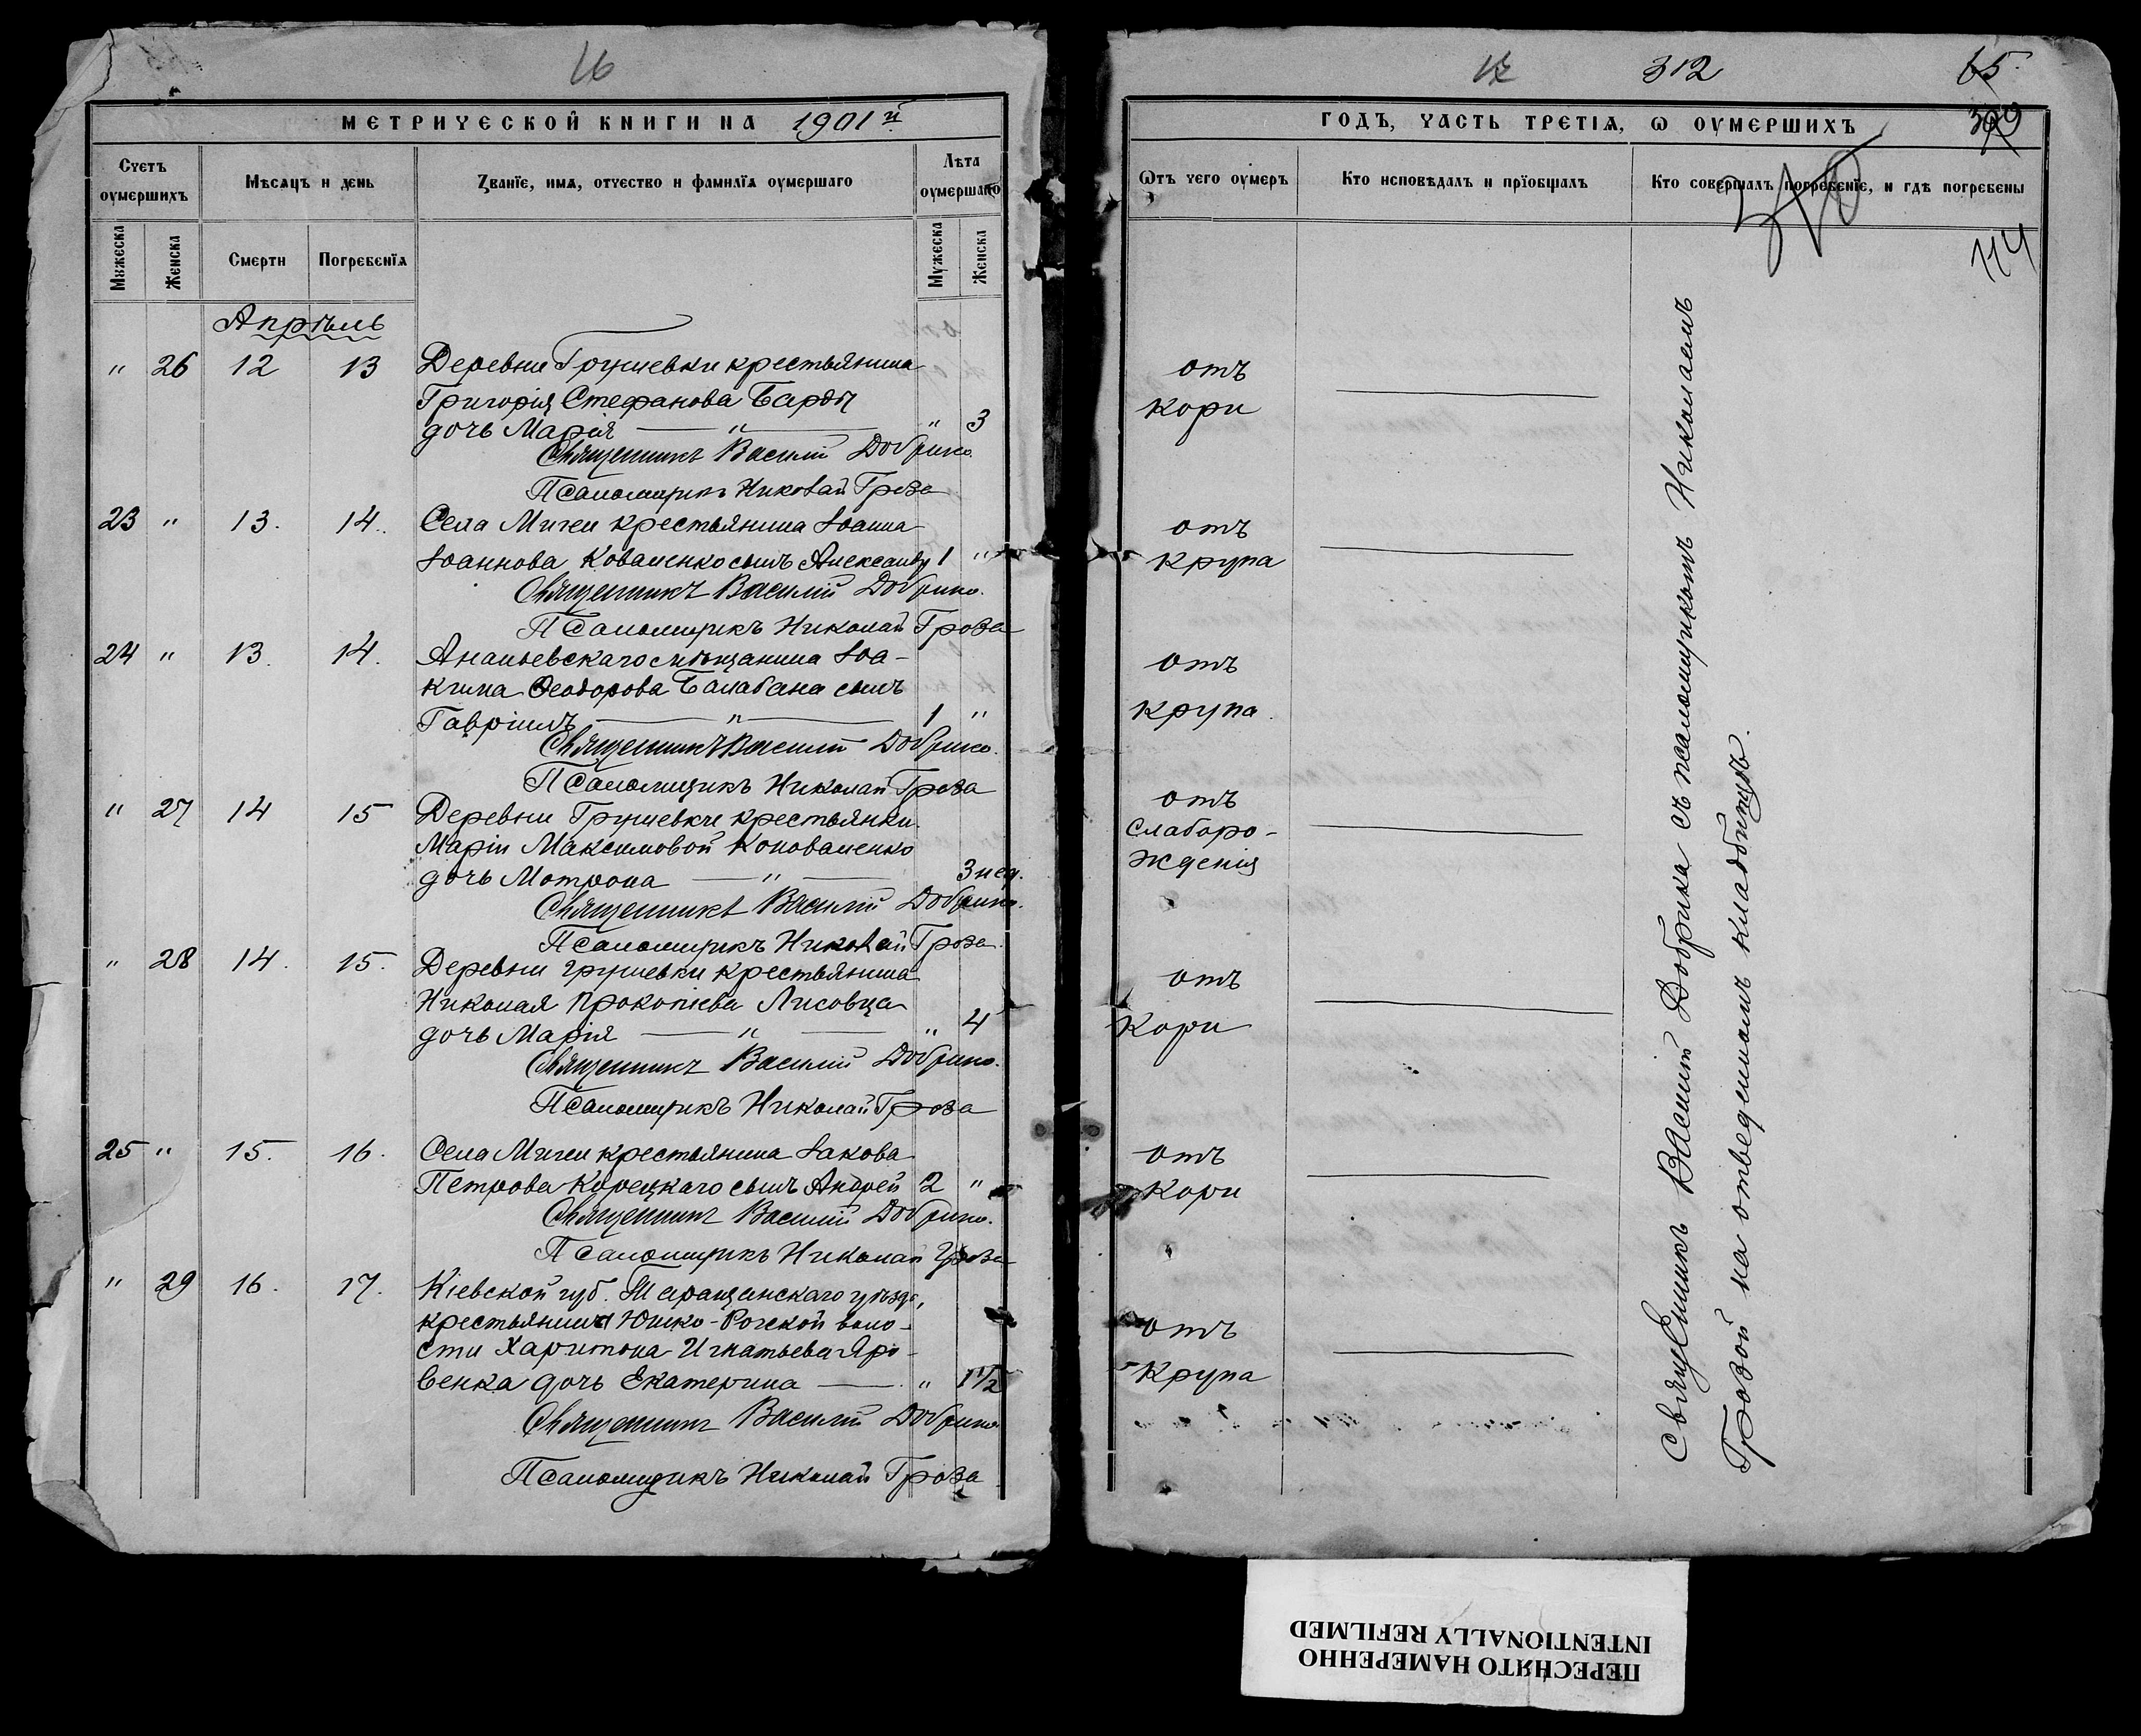 16
МЕТРИЧЕСКОЙ КНИГИ НА 1901й
Счетъ оумершихъ
Мѣсяцъ и день
Званїе, имя, отчество и фамилїя оумершаго
Лѣта оумершаго
Мужеска
Женска
Смерти
Погребенїя
Мужеска
Женска
Апрѣль
" 26 12 13 Деревни Грушевки крестьянина
Григорія Стефанова Барды
дочь Марія — " — " 3
Священникъ Василій Добрико.
Псаломщикъ Николай Гроза
23 " 13. 14. Села Мигеи крестьянина Іоанна
Іоаннова Коваленко сынъ Александр 1 "
Священникъ Василій Добрико.
Псаломщикъ Николай Гроза
24 " 13. 14. Ананьевскаго мѣщанина Іоа-
кима Ѳеодорова Балабана сынъ
Гавріилъ — " — 1 "
Священникъ Василій Добрико.
Псаломщикъ Николай Гроза
" 27 14 15 Деревни Грушевки крестьянки
Маріи Максимовой Коноваленко
дочь Мотрона — " — 3 нед.
Священникъ Василій Добрико.
Псаломщикъ Николай Гроза
" 28 14. 15. Деревни Грушевки крестьянина
Николая Прокопіева Лисовца
дочь Марія — " — " 4
Священникъ Василій Добрико.
Псаломщикъ Николай Гроза
25 " 15. 16. Села Мигеи крестьянина Іакова
Петрова Корецкаго сынъ Андрей 2 "
Священникъ Василій Добрико.
Псаломщикъ Николай Гроза
" 29 16. 17. Кіевской губ. Таращанскаго уѣзда,
крестьянина Юшко-Рогской воло-
сти Харитона Игнатьева Яро-
венка дочь Екатерина — " 1 1/2
Священникъ Василій Добрико.
Псаломщикъ Николай Гроза
312
65.
ГОДЪ, ЧАСТЬ ТРЕТІЯ, Ѡ ОУМЕРШИХЪ
Ѿтъ чего оумеръ
Кто исповѣдалъ и прїобщалъ
Кто совершалъ погребенїе, и гдѣ погребены
114
отъ
кори
отъ
крупа
отъ
крупа.
отъ
слаборо-
жденія
отъ
кори
отъ
кори
отъ
крупа
Священникъ Василій Добрика съ псаломщикомъ Николаемъ
Грозой на отведенномъ кладбищѣ.
ПЕРЕСНЯТО НАМЕРЕННО
INTENTIONALLY REFILMED